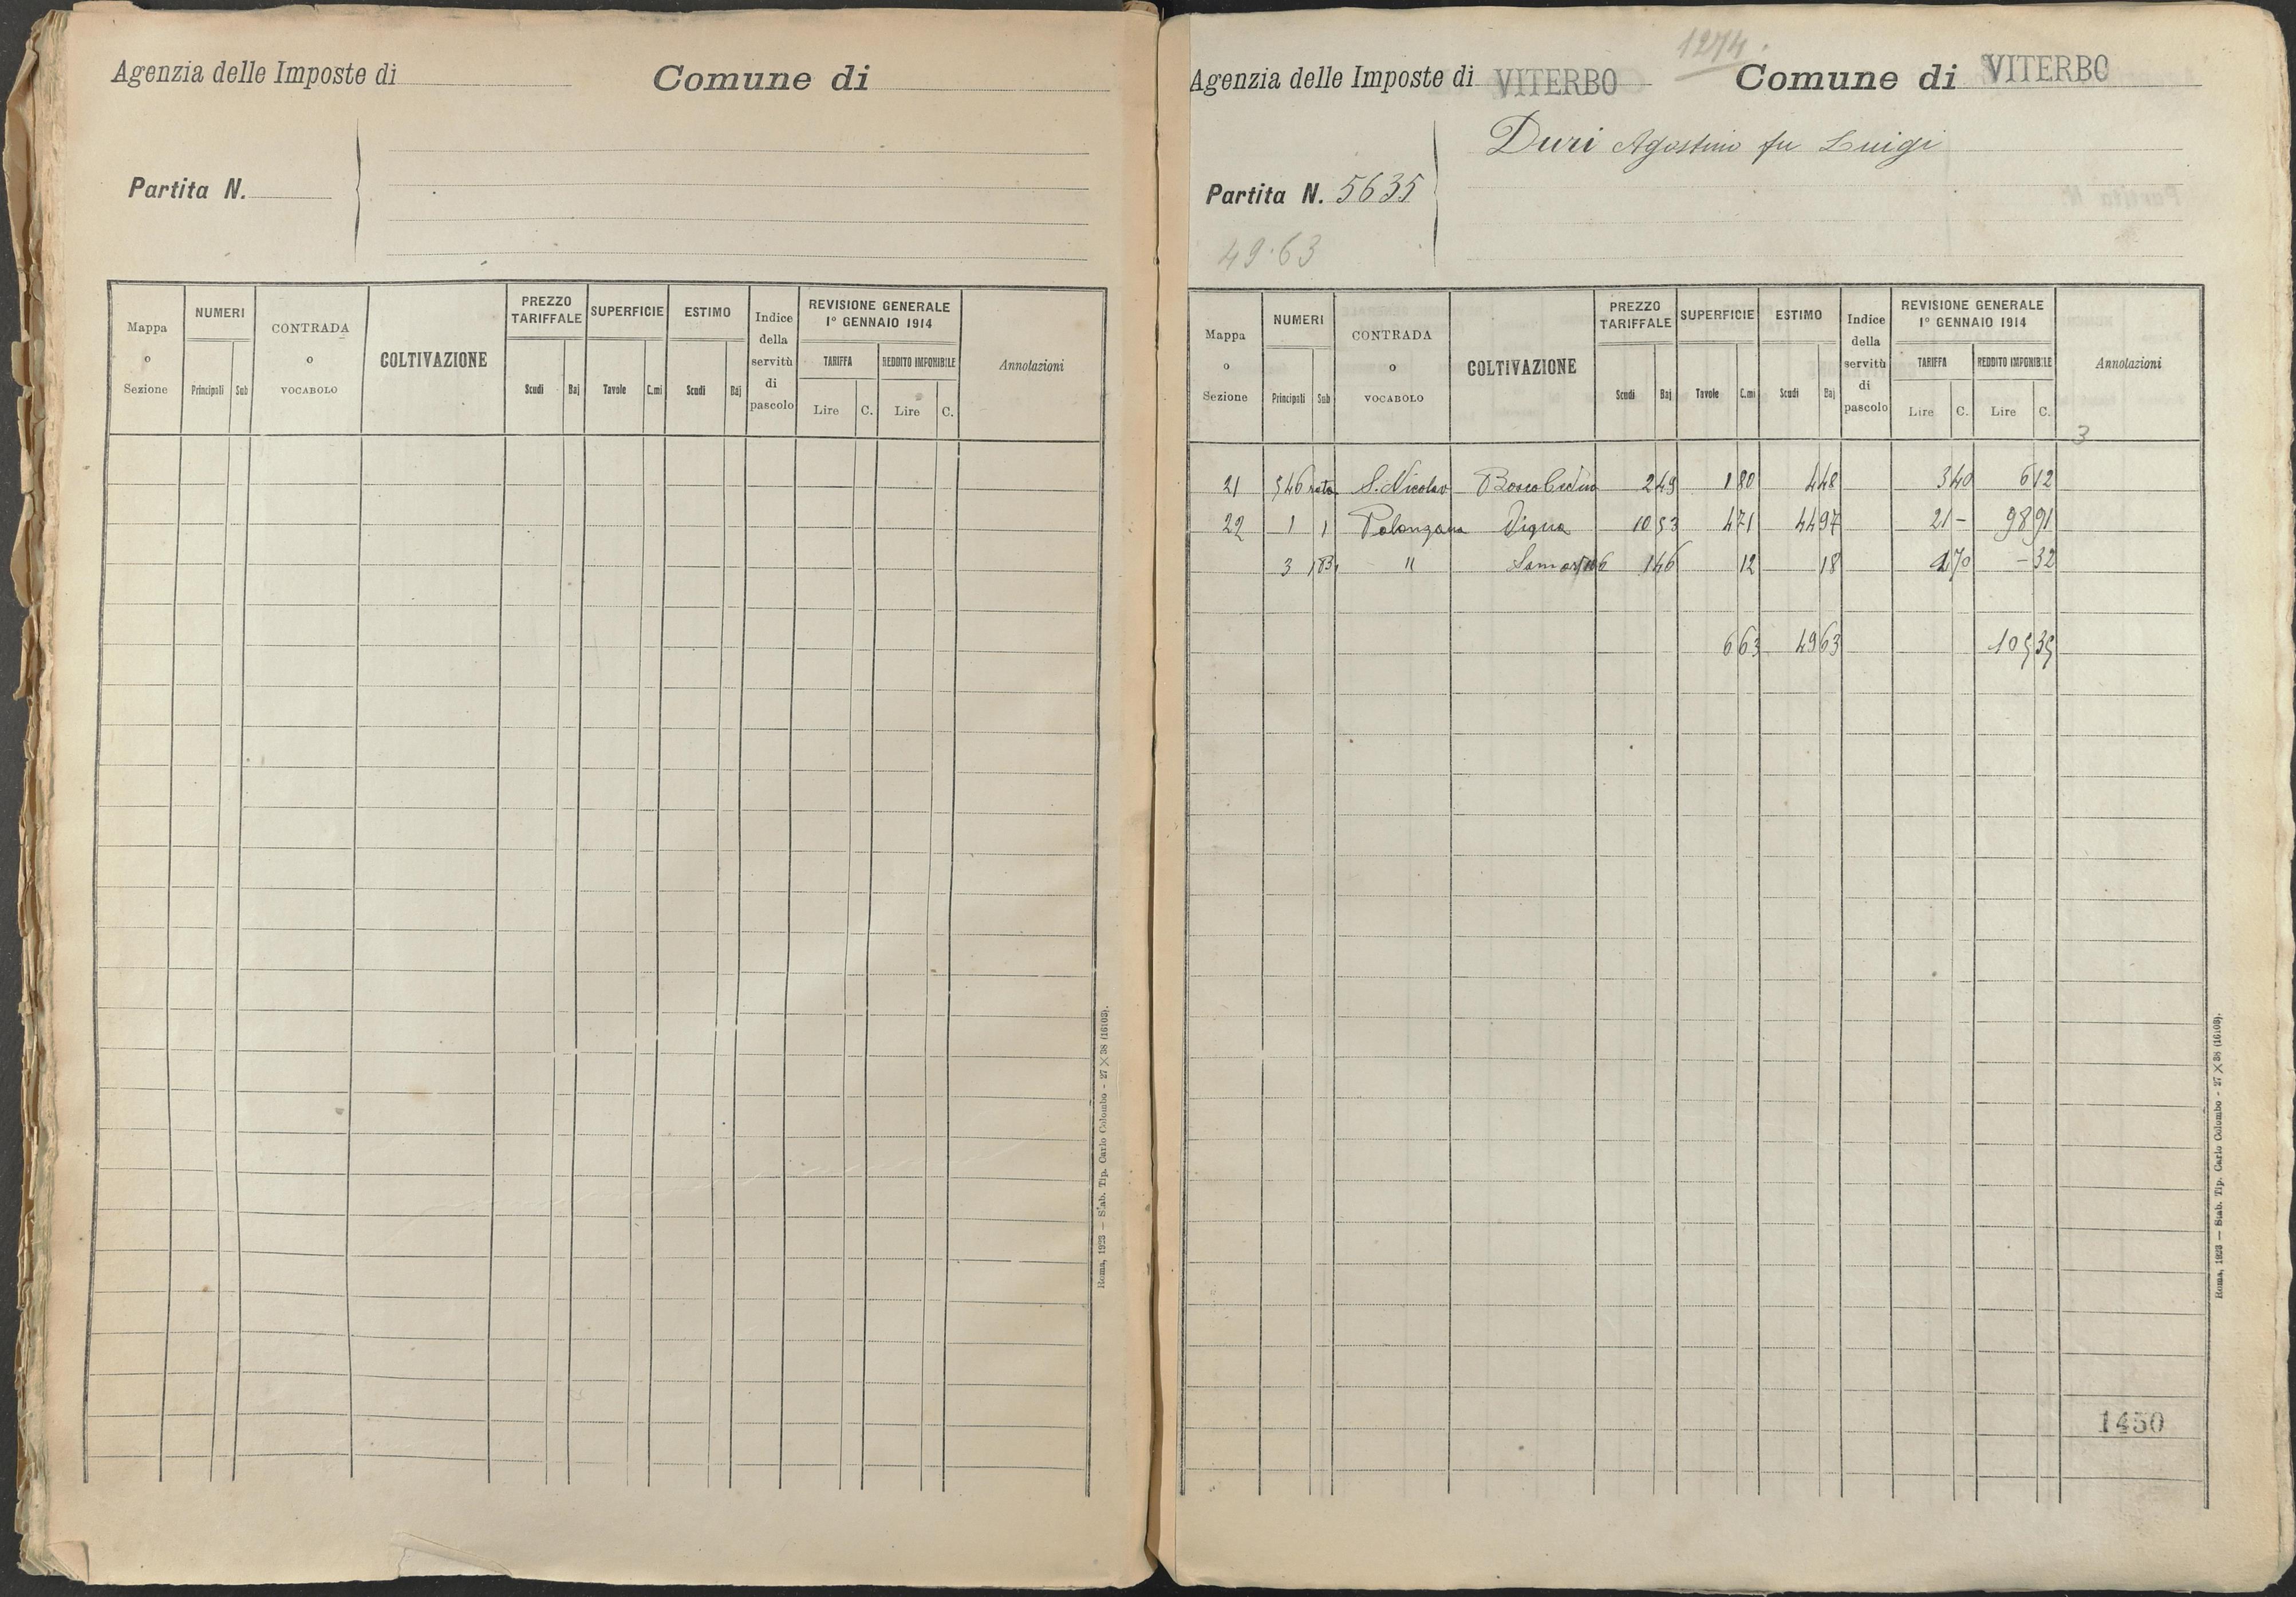 Agenzia delle Imposte di Comune di
Partita N.
Mappa o Sezione NUMERI Principali Sub CONTRADA o VOCABOLO COLTIVAZIONE PREZZO TARIFFALE Scudi Baj SUPERFICIE Tavole C.mi ESTIMO Scudi Baj Indice della servitù di pascolo REVISIONE GENERALE 1° GENNAIO 1914 TARIFFA Lire C. REDDITO IMPONIBILE Lire C. Annotazioni
Roma, 1923 — Stab. Tip. Carlo Colombo - 27 X 38 (16103).
1274.
Agenzia delle Imposte di VITERBO Comune di VITERBO
Duri Agostino fu Luigi
Partita N. 5635
49.63
Mappa o Sezione NUMERI Principali Sub CONTRADA o VOCABOLO COLTIVAZIONE PREZZO TARIFFALE Scudi Baj SUPERFICIE Tavole C.mi ESTIMO Scudi Baj Indice della servitù di pascolo REVISIONE GENERALE 1° GENNAIO 1914 TARIFFA Lire C. REDDITO IMPONIBILE Lire C. Annotazioni
3
21 546 rata S. Nicolao Bosco Ceduo 2 49 1 80 4 48 3 40 6 12
22 1 1 Polanzana Vigna 10 53 4 71 44 97 21 - 98 91
3 " 1 46 12 18 2 70 - 32
6 63 49 63 105 35
1450
Roma, 1923 — Stab. Tip. Carlo Colombo - 27 X 38 (16103).